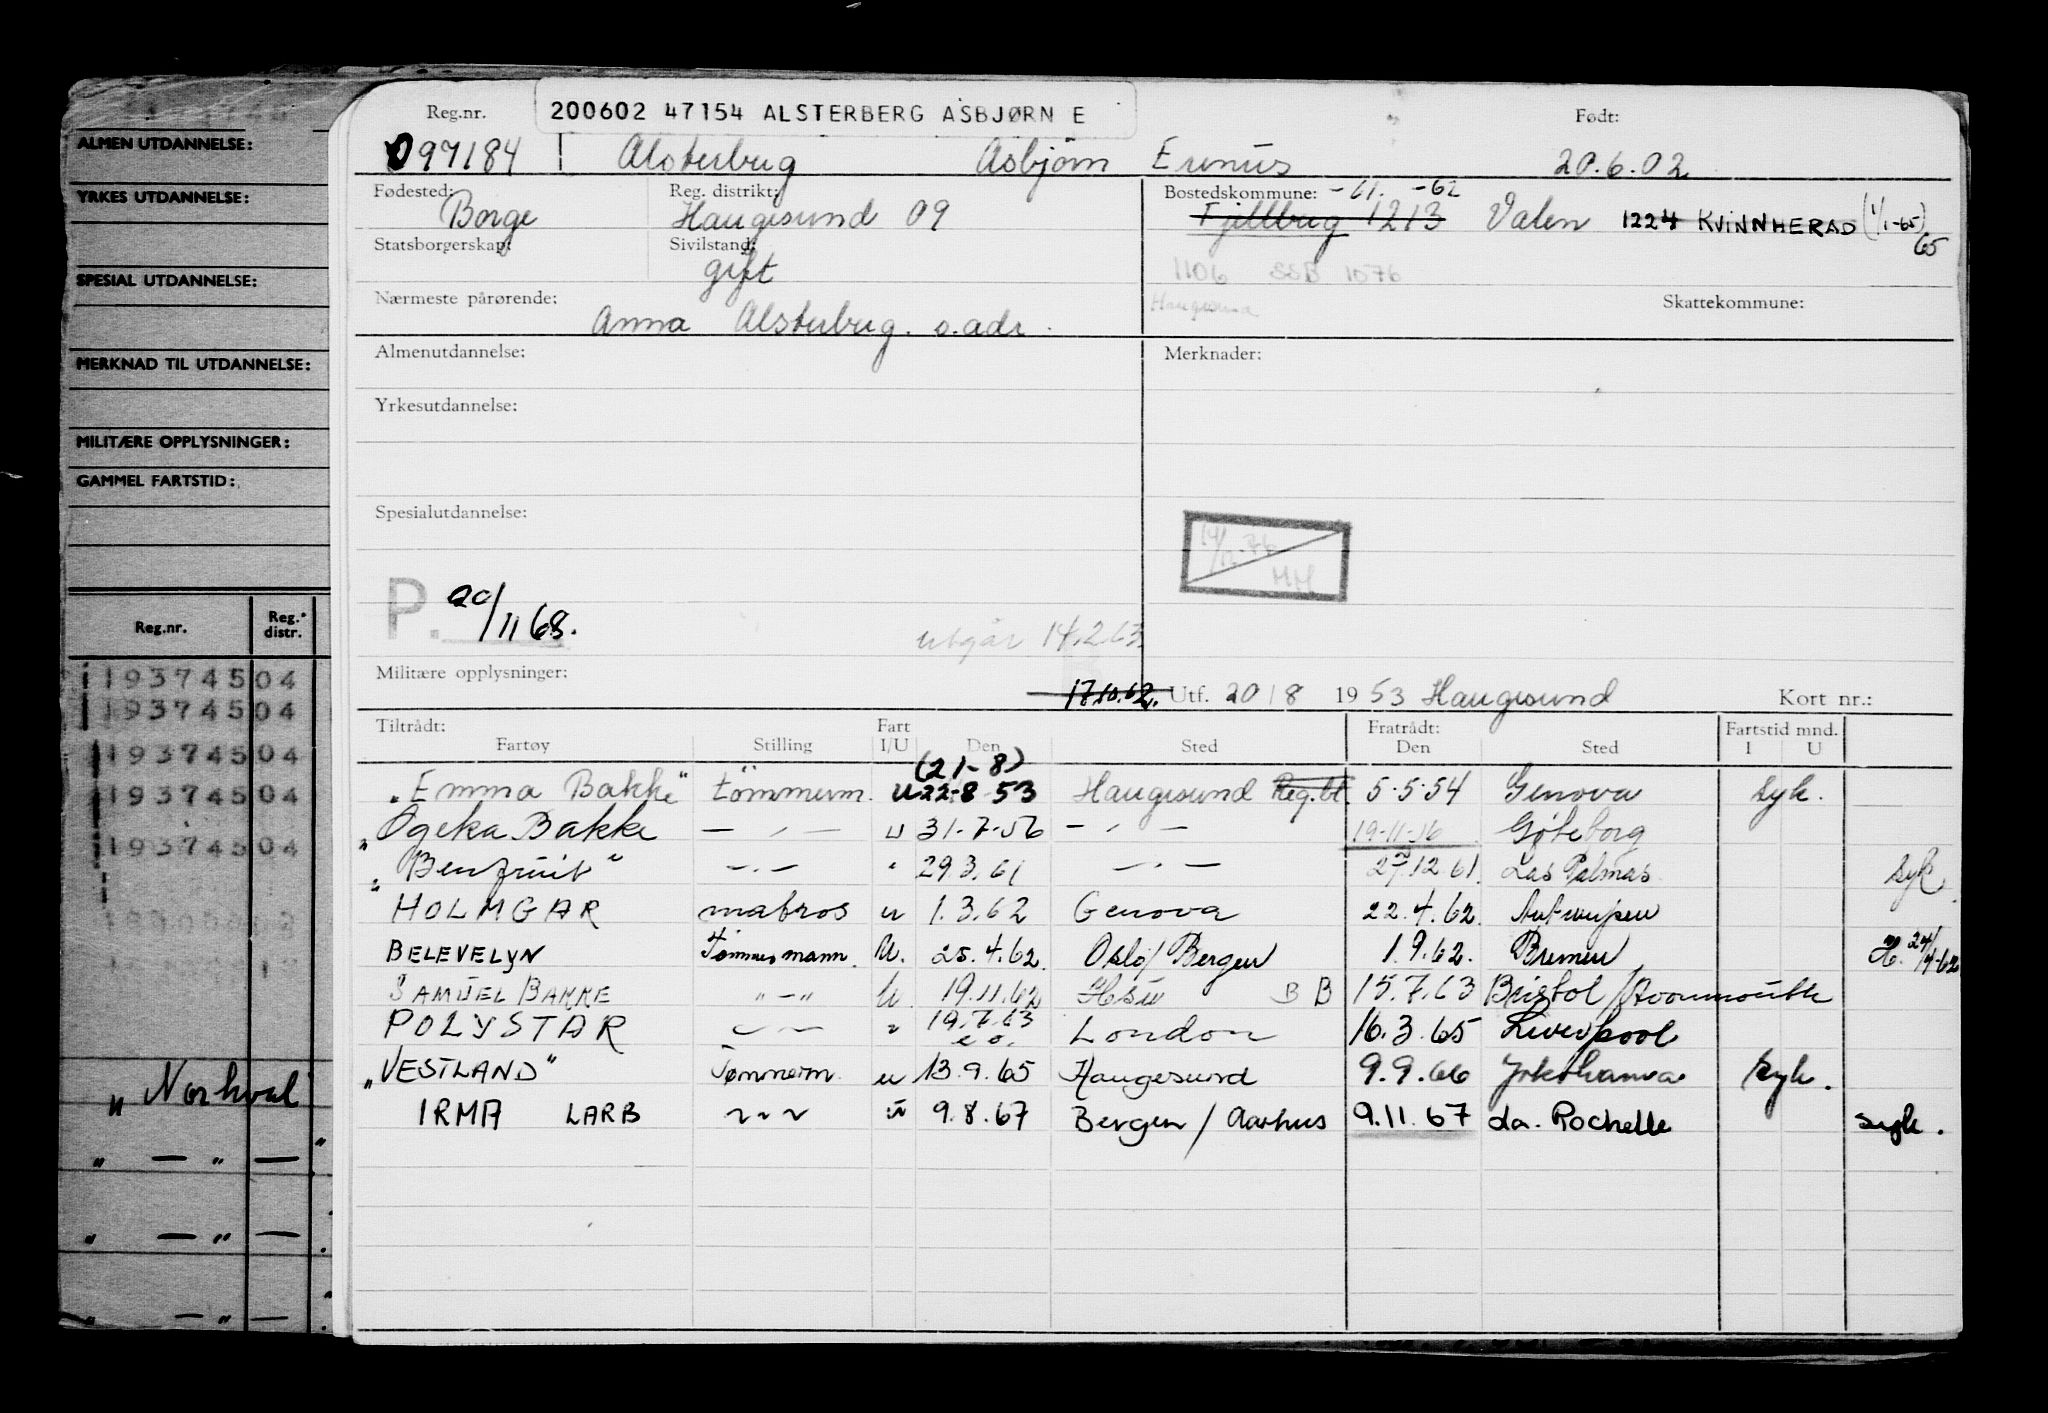 ALMEN UTDANNELSE:
YRKES UTDANNELSE:
SPESIAL UTDANNELSE:
MERKNAD TIL UTDANNELSE:
MILITÆRE OPPLYSNINGER:
GAMMEL FARTSTID:
Reg.nr. Reg. distr.
193745 04
193745 04
193745 04
193745 04
193745 04
„ Norhval
„ — „ — „
„ — „ —
„ — „ —
Reg.nr. 200602 47154 ALSTERBERG ASBJØRN E Født:
097184 Alsterberg Asbjørn 20.6.02
Fødested: Reg. distrikt: Bostedskommune: -61. -62
Borge Haugesund 09 Fjellberg 1213 Valen 1224 KVINNHERAD (1/1-65) 65
Statsborgerskap: Sivilstand:
gift 1106 SSB 1076
Nærmeste pårørende: Haugesund Skattekommune:
Anna Alsterberg. s.adr.
Almenutdannelse: Merknader:
Yrkesutdannelse:
Spesialutdannelse:
MH
P. 20/11 68.
utgår 14.2.63
Militære opplysninger: 17.10.62. Utf. 20/8 1953 Haugesund Kort nr.:
Tiltrådt: Fart Fratrådt: Fartstid mnd.
Fartøy Stilling I/U Den Sted Den Sted I U
(21-8)
„Emma Bakke" tømmerm. u 22-8 53 Haugesund Reg.bl. 5-5-54 Genova syk.
„Ogeka Bakke — „ — u 31-7-56 — „ — 19-11-56 Gøteborg
„Benfruit" — „ — " 29.3.61 — „ — 27.12.61. Las Palmas syk.
HOLMGAR matros u 1.3.62 Genova 22.4.62. Antwerpen
BELEVELYN Tømmermann. U. 25.4.62. Oslo/Bergen 1.9.62. Bremen 24/4-62
SAMUEL BAKKE " — " U. 19.11.62 B B 15.7.63 Bristol/Avonmouth
POLYSTAR — „ — " 19.7.63 London 16.3.65 Liverpool
e.o.
„VESTLAND" Tømmerm. u 13.9.65 Haugesund 9.9.66 Yokohama syk.
IRMA LARB ~ " ~ u 9.8.67 Bergen / Aarhus 9.11.67 La. Rochelle syk.